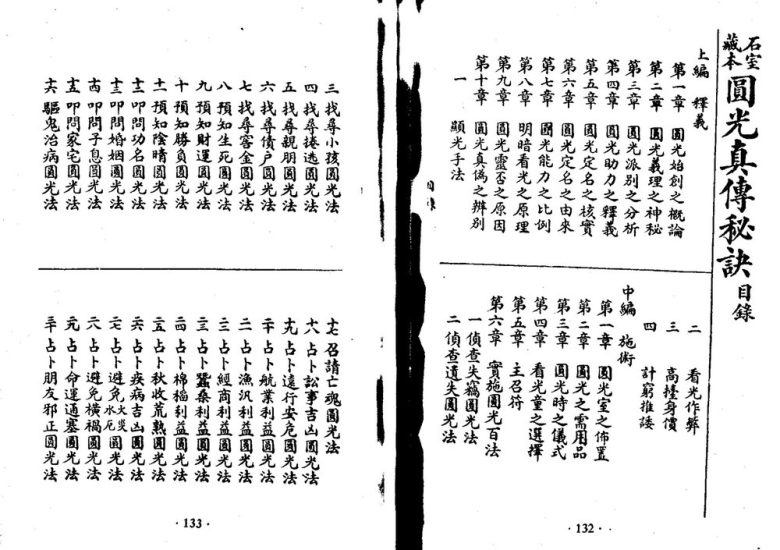 石室藏本 圓光真傳秘訣 目錄
上編 釋義
第一章 圓光始創之概論
第二章 圓光義理之神秘
第三章 圓光派別之分析
第四章 圓光助力之釋義
第五章 圓光定名之核實
第六章 圓光定名之由來
第七章 圓光能力之比例
第八章 明暗看光之原理
第九章 圓光靈否之原因
第十章 圓光真偽之辨別
一 顯光手法
二 看光作弊
三 高擡身價
四 計窮推諉
中編 施術
第一章 圓光室之佈置
第二章 圓光之需用品
第三章 圓光時之儀式
第四章 看光童之選擇
第五章 主召符
第六章 實施圓光百法
一 偵查失竊圓光法
二 偵查遺失圓光法
目錄
·132·
三 找尋小孩圓光法
四 找尋捲逃圓光法
五 找尋親朋圓光法
六 找尋債户圓光法
七 找尋窖金圓光法
八 預知生死圓光法
九 預知財運圓光法
十 預知勝負圓光法
十一 預知陰晴圓光法
十二 叩問功名圓光法
十三 叩問婚姻圓光法
十四 叩問子息圓光法
十五 叩問家宅圓光法
十六 驅鬼治病圓光法
十七 召請亡魂圓光法
十八 占卜訟事吉凶圓光法
十九 占卜遠行安危圓光法
二十 占卜航業利益圓光法
二一 占卜漁汛利益圓光法
二二 占卜經商利益圓光法
二三 占卜蠶桑利益圓光法
二四 占卜棉稻利益圓光法
二五 占卜秋收荒熟圓光法
二六 占卜疾病吉凶圓光法
二七 占卜避免火災水厄圓光法
二八 占卜避免橫禍圓光法
二九 占卜命運通塞圓光法
三十 占卜朋友邪正圓光法
·133·